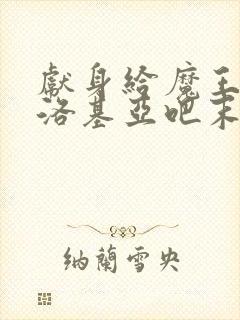 獻身給魔王
洛基亞吧末
納蘭雪央